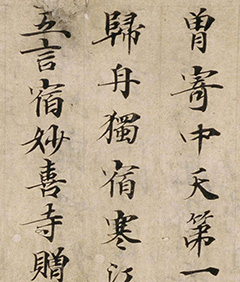 曾寄中天第一
歸舟獨宿寒江
五言宿妙喜寺贈